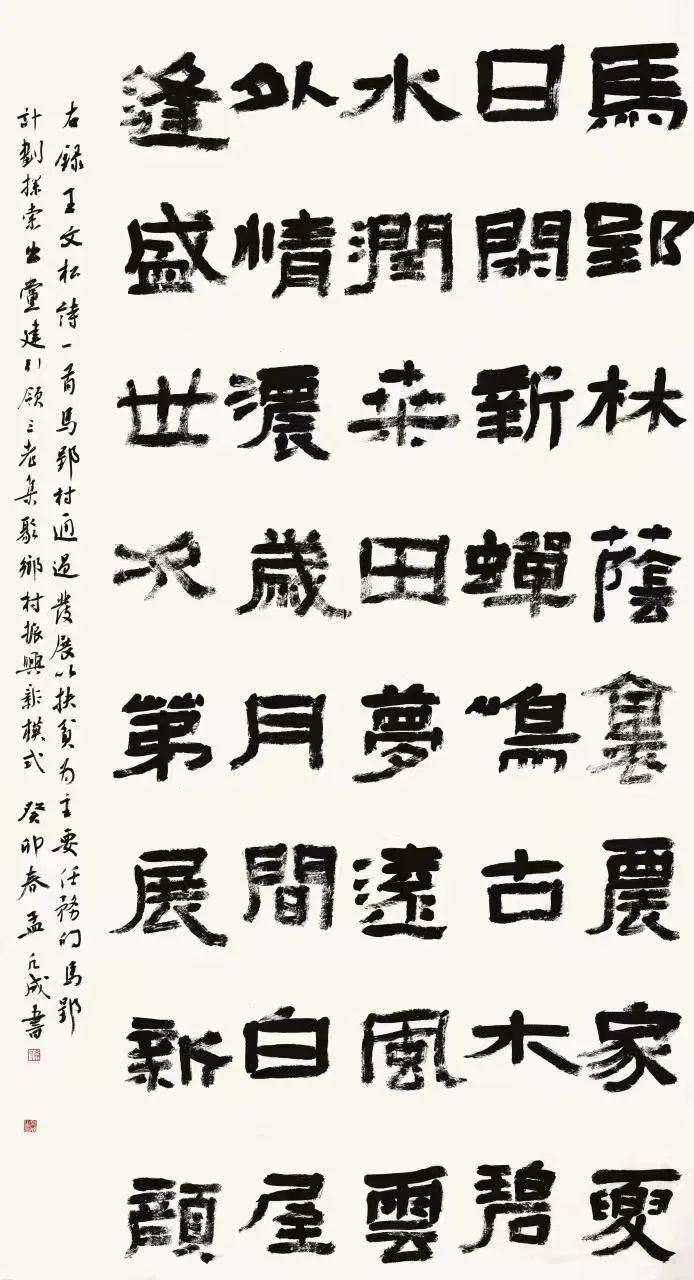 馬郢林蔭裏農家夏
日閑新蟬鳴古木碧
水潤菜田夢遠風雲
外情濃歲月間白屋
逢盛世次第展新顏
右録王文松詩一首馬郢村通過發展以扶貧为主要任務的馬郢
計劃探索出黨建引領三老集聚鄉村振興新模式 癸卯春孟凡成書